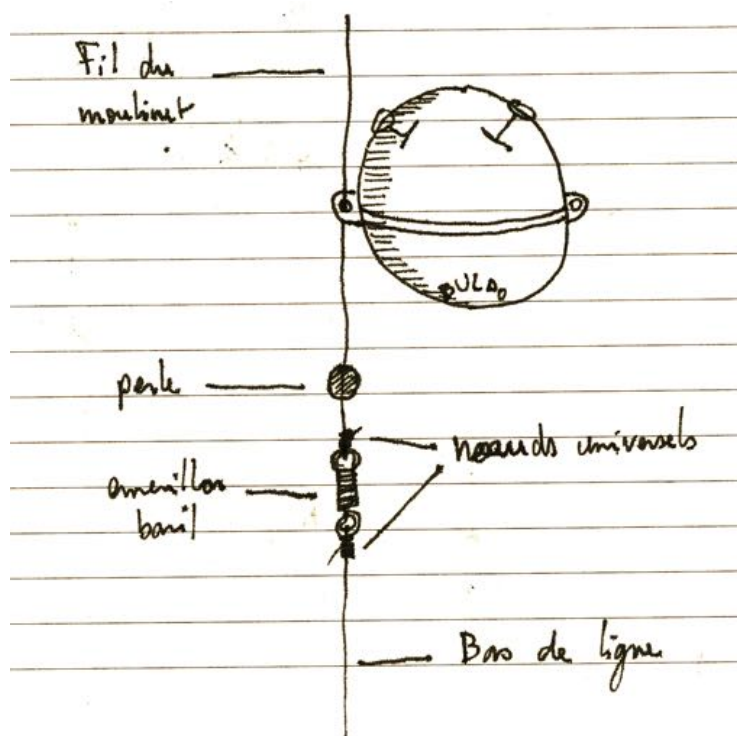 Fil du
moulinet
BULDO
perle
noeuds universels
emerillon
baril
Bas de ligne